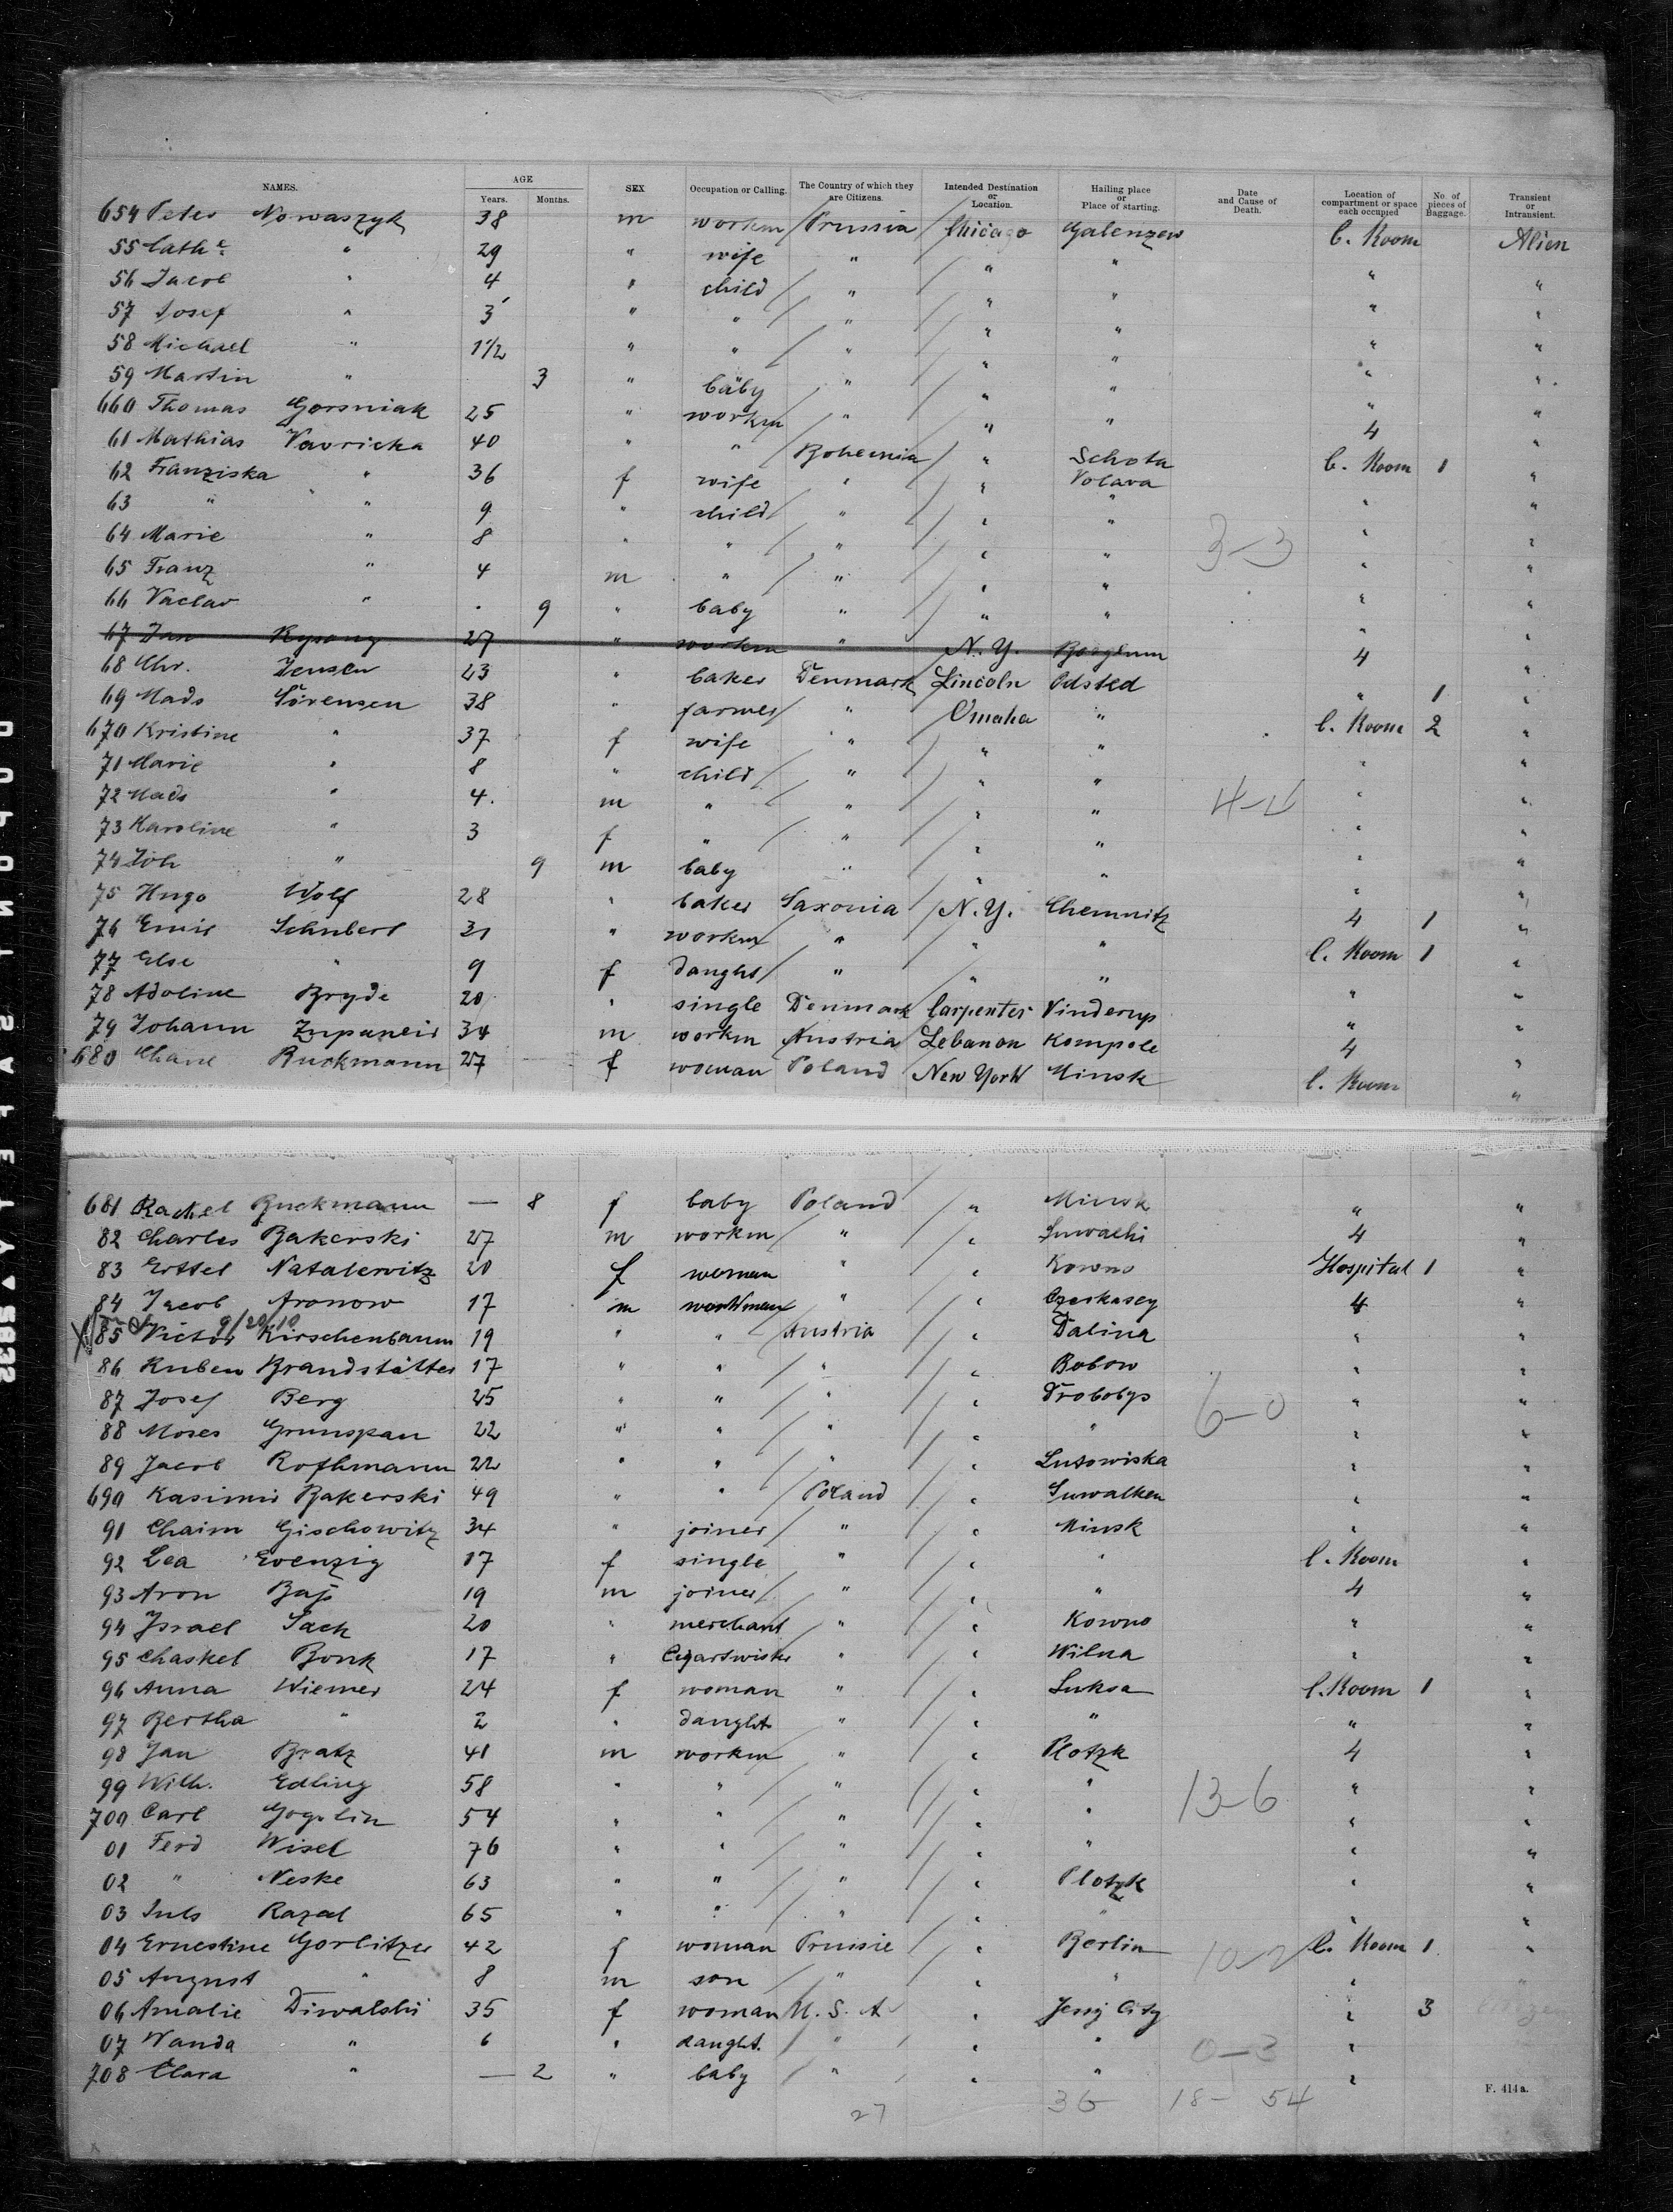 NAMES. AGE Years. Months. SEX Occupation or Calling. The Country of which they are Citizens. Intended Destination or Location. Hailing place or Place of starting. Date and Cause of Death. Location of compartment or space each occupied No. of pieces of Baggage. Transient or Intransient.
654 Peter Nowaszyk 38 m workm Prussia Chicago Galenzew C. Room Alien
55 Cath.e " 29 " wife " " " " "
56 Jacob " 4 " child " " " " "
57 Josef " 3 " " " " " " "
58 Michael " 1 1/2 " " " " " " "
59 Martin " 3 " baby " " " " "
660 Thomas Gorsniak 25 " workm " " " 4 "
61 Mathias Vavricka 40 " " Bohemia " Schota C. Room 1 "
62 Franziska " 36 f wife " " Volava " "
63 " " 9 " child " " " " "
64 Marie " 8 " " " " " " "
3-3
65 Franz " 4 m " " " " " "
66 Vaclav " 9 " baby " " " " "
67 Jan 27 " workm " N. Y. 4 "
68 Chr. Jensen 23 " baker Denmark Lincoln Odsted " 1 "
69 Mads Sörensen 38 " farmer " Omaha " C. Room 2 "
670 Kristine " 37 f wife " " " " "
71 Marie " 8 " child " " " " "
72 Mads " 4. m " " " " " "
4-4
73 Karoline " 3 f " " " " " "
74 Joh " 9 m baby " " " " "
75 Hugo Wolf 28 " baker Saxonia N. Y. Chemnitz 4 1 "
76 Emil Schubert 31 " workm " " " C. Room 1 "
77 Else " 9 f daught " " " " "
78 Adoline Bryde 20 " single Denmark Carpenter Vinderup " "
79 Johann Zupancis 34 m workm Austria Lebanon Kompole 4 "
680 Chane Buckmann 27 f woman Poland New York Minsk C. Room "
681 Rachel Buckmann — 8 f baby Poland " Minsk " "
82 Charles Bakerski 27 m workm " " Suwalki 4 "
83 Ettel Natalewitz 20 f woman " " Kowno Hospital 1 "
84 Jacob Aronow 17 m workman " " Czerkasey 4 "
9/20/10
85 Victor Kirschenbaum 19 " " Austria " Dalina " "
86 Ruben Brandstätter 17 " " " " Bobow " "
87 Josef Berg 25 " " " " Drobobys " "
6-0
88 Moses Grunspan 22 " " " " " " "
89 Jacob Rothmann 22 " " " " Lutowiska " "
690 Kasimir Bakerski 49 " " Poland " Suwalken " "
91 Chaim Gischowitz 34 " joiner " " Minsk " "
92 Lea Evenzig 17 f single " " " C. Room "
93 Aron Baß 19 m joiner " " " 4 "
94 Israel Sack 20 " merchant " " Kowno " "
95 Chaskel Bonk 17 " " " Wilna " "
96 Anna Wiemer 24 f woman " " Luksa C. Room 1 "
97 Bertha " 2 " daught " " " " "
98 Jan Bratz 41 m workm " " Plotzk 4 "
99 Wilh. Edling 58 " " " " " " "
13-6
700 Carl Gogolin 54 " " " " " " "
01 Ferd Wisel 76 " " " " " " "
02 " Neske 63 " " " " Plotzk " "
03 Juls Razal 65 " " " " " " "
04 Ernestine Gorlitzer 42 f woman Prussie " Berlin 10-2 C. Room 1 "
05 August " 8 m son " " " " "
06 Amalie Diwalski 35 f woman U. S. A " Jersy City " 3
07 Wanda " 6 " daught. " " " "
0-3
708 Clara " — 2 " baby " " " "
27 36 18- 54
F. 414a.